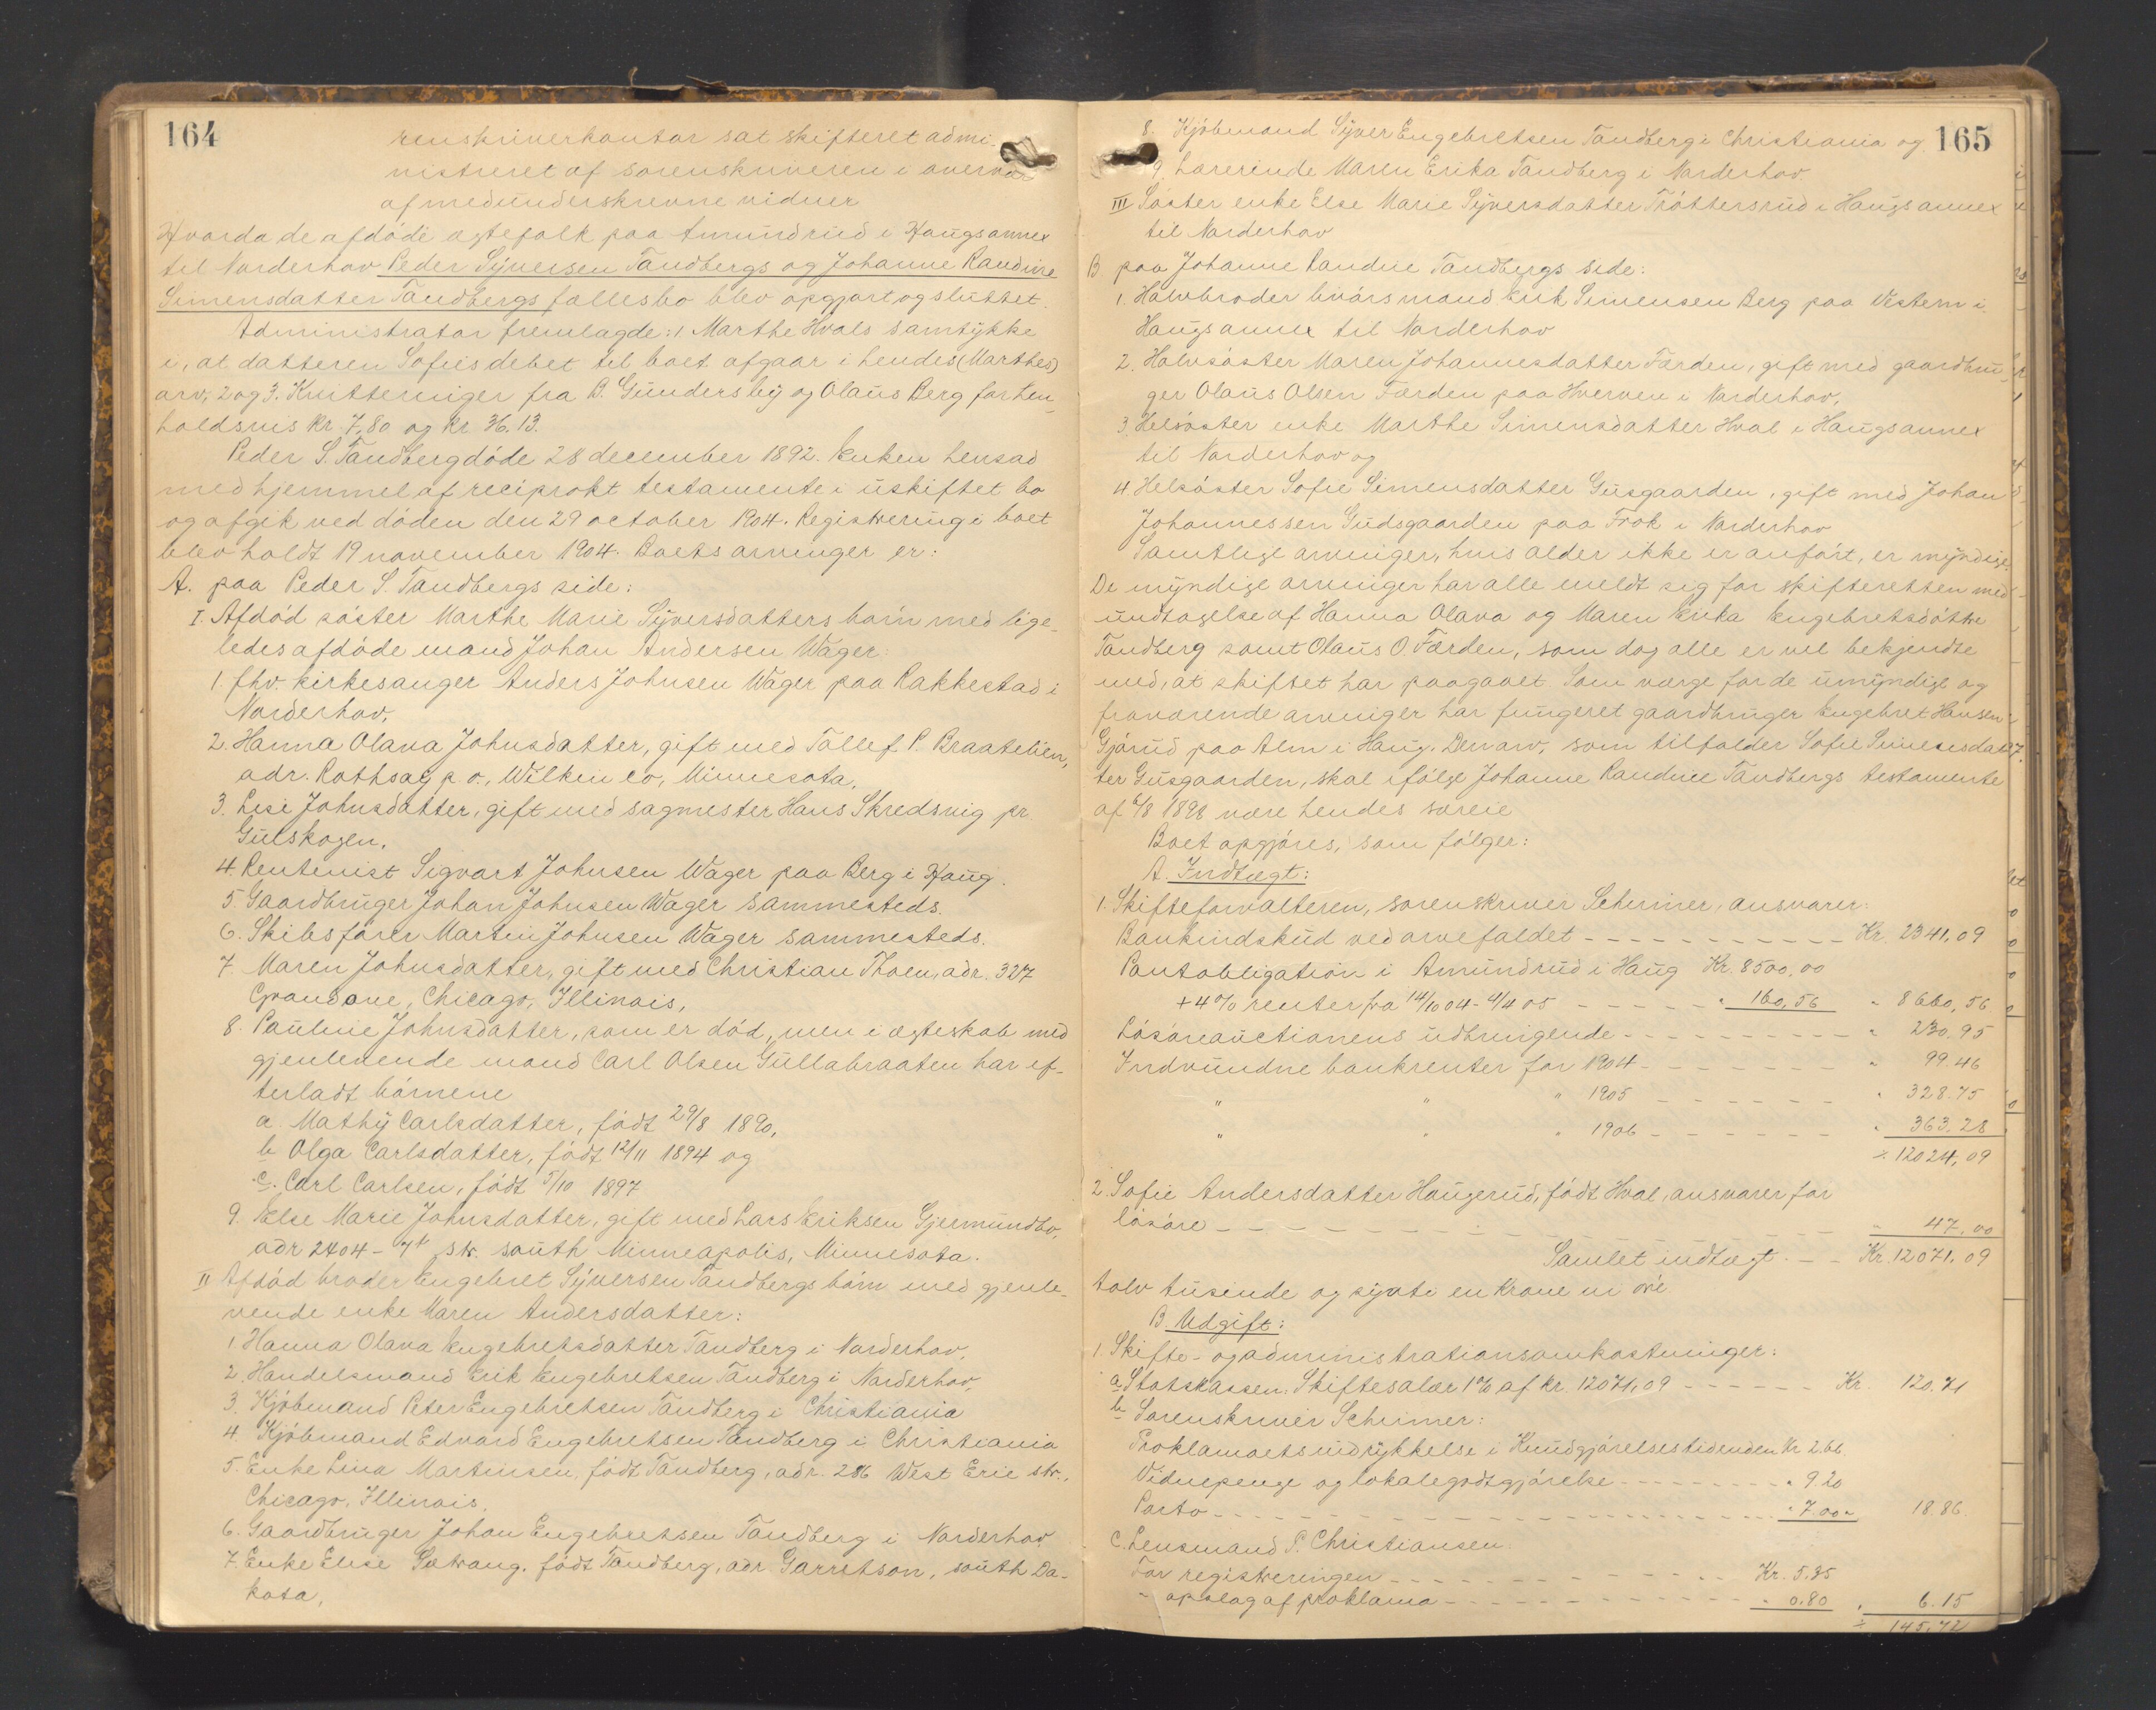 164
renskriverkontor sat skifteret admi-
nistreret af sorenskriveren i overvær
af medunderskrevne vidner
Hvorda de afdöde ægtefolk paa Amundrud i Haugs annex
til Norderhov Peder Syversen Tandbergs og Johanne Randine
Simensdatter Tandbergs fællesbo blev opgjort og sluttet.
Administrator fremlagde: 1. Marthe Hvals samtykke
i, at datteren Sofies debet til boet afgaar i hendes (Marthes)
arv, 2 og 3. Kvitteringer fra B. Gundersby og Olaus Berg for hen-
holdsvis Kr. 7,80 og Kr. 36.13.
Peder S. Tandberg döde 28 december 1892. Enken hensad
med hjemmel af reciprokt testamente i uskiftet bo
og afgik ved döden den 29 october 1904. Registrering i boet
blev holdt 19 november 1904. Boets arvinger er:
A. paa Peder S. Tandbergs side:
I. Afdöd söster Marthe Marie Syversdatters börn med lige-
ledes afdöde mand Johan Andersen Wager:
1. fhv. kirkesanger Anders Johnsen Wager paa Rakkestad i
Norderhov,
2. Hanna Olava Johnsdatter, gift med Tollef P. Braatelien,
adr. Rothsay p.o., Wilkin co, Minnesota,
3. Lise Johnsdatter, gift med sagmester Hans Skredsvig pr.
Gulskogen,
4. Rentenist Sigvart Johnsen Wager paa Berg i Haug.
5. Gaardbruger Johan Johnsen Wager sammesteds.
6. Skibsförer Martin Johnsen Wager sammesteds.
7. Maren Johnsdatter, gift med Christian Thoen, adr. 327
Grand ave, Chicago, Illinois,
8. Pauline Johnsdatter, som er död, men i ægteskab med
gjenlevende mand Carl Olsen Gullabraaten har ef-
terladt börnene
a. Mathy Carlsdatter, födt 29/8 1890,
b. Olga Carlsdatter, födt 12/11 1894 og
c. Carl Carlsen, födt 5/10 1897
9. Else Marie Johnsdatter, gift med Lars Eriksen Gjermundbo,
adr 2404 - 7t str. south Minneapolis, Minnesota.
II Afdöd broder Engebret Syversen Tandbergs börn med gjenle-
vende enke Maren Andersdatter:
1. Hanna Olava Engebretsdatter Tandberg i Norderhov,
2. Handelsmand Erik Engebretsen Tandberg i Norderhov,
3. Kjöbmand Peter Engebretsen Tandberg i Christiania
4. Kjöbmand Edvard Engebretsen Tandberg i Christiania
5. Enke Lina Martinsen, födt Tandberg, adr. 286 West Erie str.,
Chicago, Illinois,
6. Gaardbruger Johan Engebretsen Tandberg i Norderhov
7. Enke Elise födt Tandberg, adr. Garretson, south Da-
kota,
165
8. Kjöbmand Syver Engebretsen Tandberg i Christiania og
9. Lærerinde Maren Erika Tandberg i Norderhov.
III Söster enke Else Marie Syversdatter Tröttersrud i Haugs annex
til Norderhov
B. paa Johanne Randine Tandbergs side:
1. Halvbroder livörsmand Erik Simensen Berg paa Vestern i
Haugs annex til Norderhov
2. Halvsöster Maren Johannesdatter Færden, gift med gaardbru-
ger Olaus Olsen Færden paa Hverven i Norderhov,
3. Helsöster enke Marthe Simensdatter Hval i Haugs annex
til Norderhov og
4. Helsöster Sofie Simensdatter Gusgaarden, gift med Johan
Johannessen Gudsgaarden paa Frok i Norderhov
Samtlige arvinger, hvis alder ikke er anfört, er myndige.
De myndige arvinger har alle meldt sig for skifteretten med
undtagelse af Hanna Olava og Maren Erika Engebretsdötre
Tandberg samt Olaus O. Færden, som dog alle er vel bekjendte
med, at skiftet har paagaaet. Som værge for de umyndige og
fraværende arvinger har fungeret gaardbruger Engebret Hansen
Gjörud paa Alm i Haug. Den arv, som tilfalder Sofie Simensdat-
ter Gusgaarden, skal ifölge Johanne Randine Tandbergs testamente
af 6/8 1898 være hendes særeie
Boet opgjöres, som fölger:
A. Indtægt:
1. Skifteforvalteren, sorenskriver Schirmer, ansvarer:
Bankindskud ved arvefaldet - - - Kr. 2341,09
Pantobligation i Amundrud i Haug Kr. 8500,00
+ 4% renter fra 14/10 04 - 4/4 05 - - - " 160,56 " 8660,56
Lösöreauctionens udbringende - - - " 230,95
Indvundne bankrenter for 1904 - - - " 99.46
" " " 1905 - - - " 328.75
" " " 1906 - - - " 363.28
12024,09
2. Sofie Andersdatter Haugerud, födt Hval, ansvarer for
lösöre - - - " 47,00
Samlet indtægt. - - Kr. 12071,09
tolv tusende og sytti en Krone ni öre
B. Udgift:
1. Skifte- og administrationsomkostninger:
a. Statskassen: Skiftesalær 1% af kr. 12071,09 - - - Kr. 120.71
b. Sorenskriver Schirmer:
Proklamaets indrykkelse i Kundgjörelsestidenden Kr 2.66
Vidnepenge og lokalegodtgjörelse - - - " 9.20
Porto - - - " 7.00 18.86.
c. Lensmand P. Christiansen:
For registreringen - - - Kr. 5.35
" opslag af proklama - - - " 0.80 " 6.15
145,72